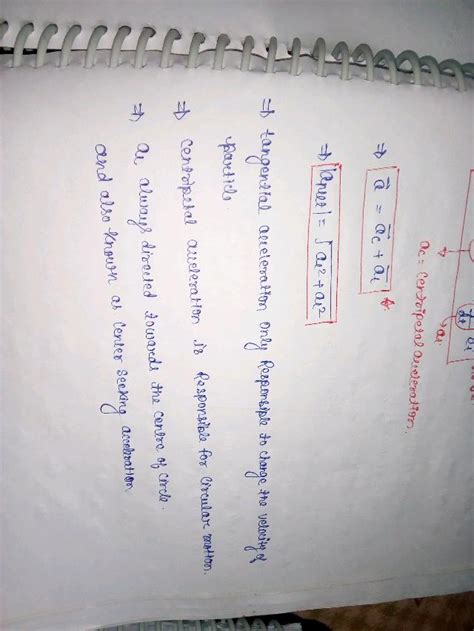 dt
at
ac = centripetal acceleration.
⇒ a⃗ = a⃗c + a⃗t
⇒ |anet| = √ac² + at²
⇒ tangential acceleration only Responsible to change the velocity of
particle
⇒ centripetal acceleration is Responsible for circular motion.
⇒ ac always directed towards the centre of circle.
and also known as center seeking acceleration